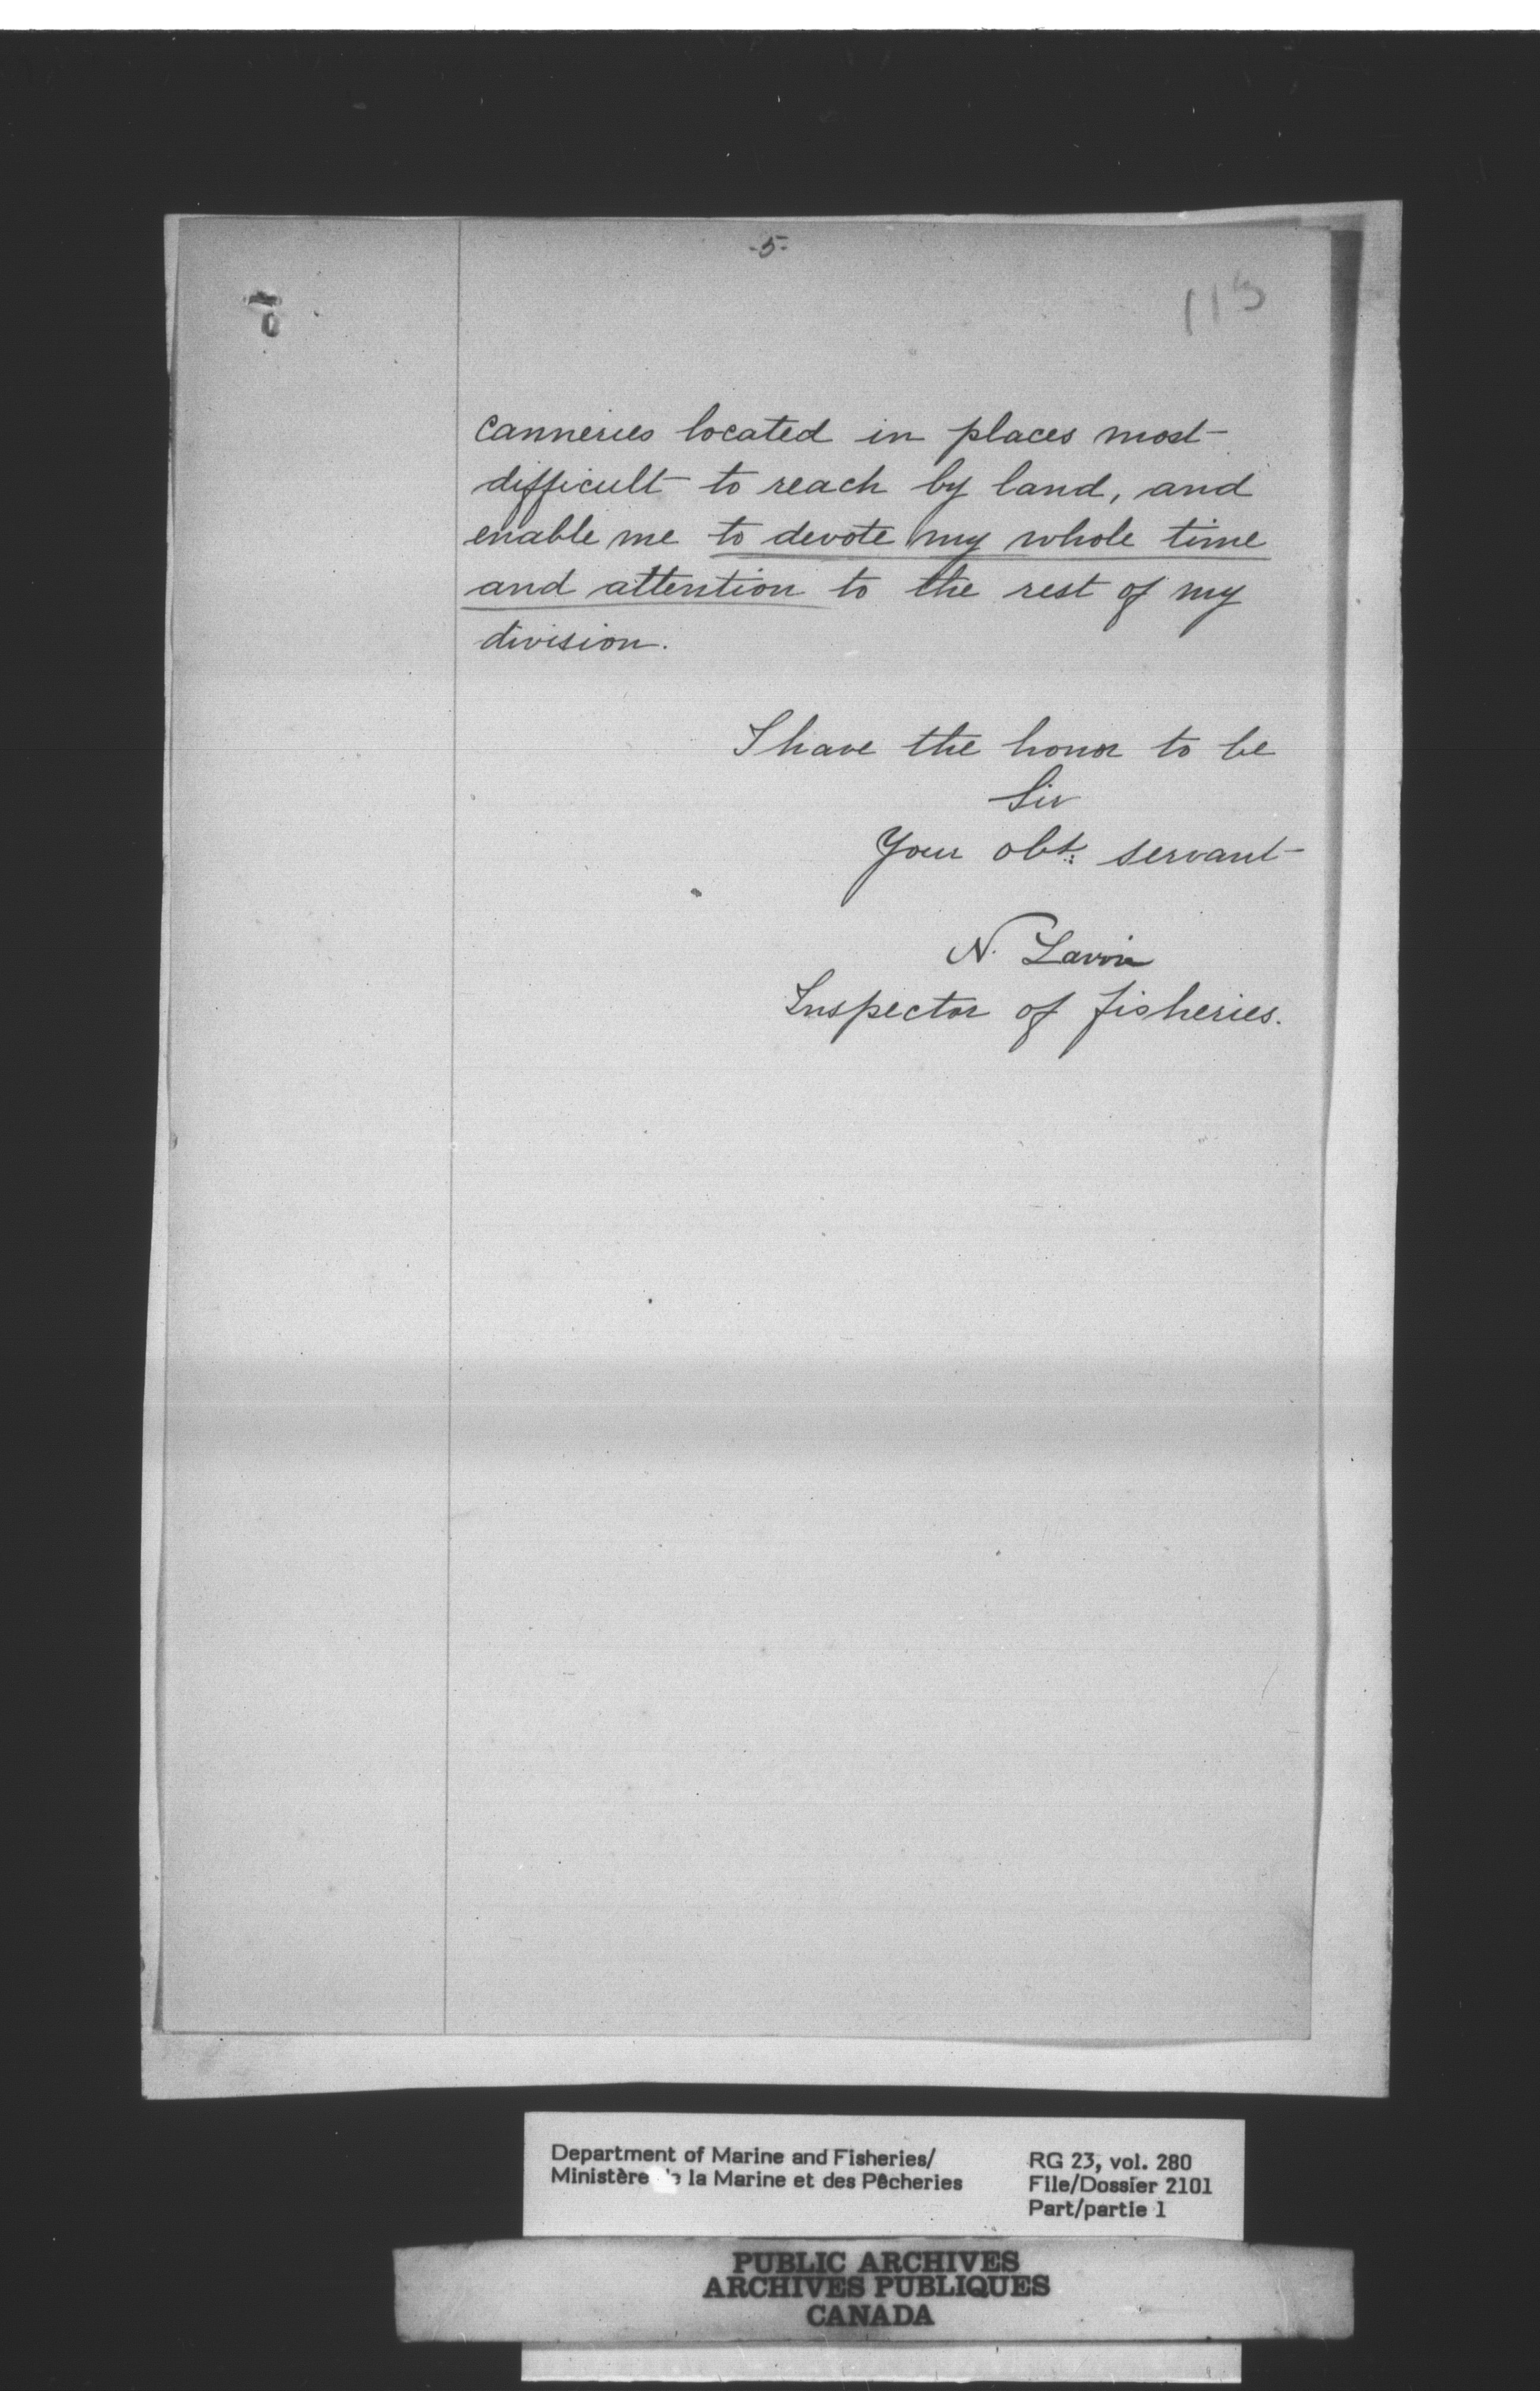 -5-
115
canneries located in places most
difficult to reach by land, and
enable me to devote my whole time
and attention to the rest of my
division.
I have the honor to be
Sir
Your obt: servant
N. Lavoie
Inspector of fisheries.
Department of Marine and Fisheries/
Ministère la Marine et des Pêcheries
RG 23, vol. 280
File/Dossier 2101
Part/partie 1
PUBLIC ARCHIVES
ARCHIVES PUBLIQUES
CANADA